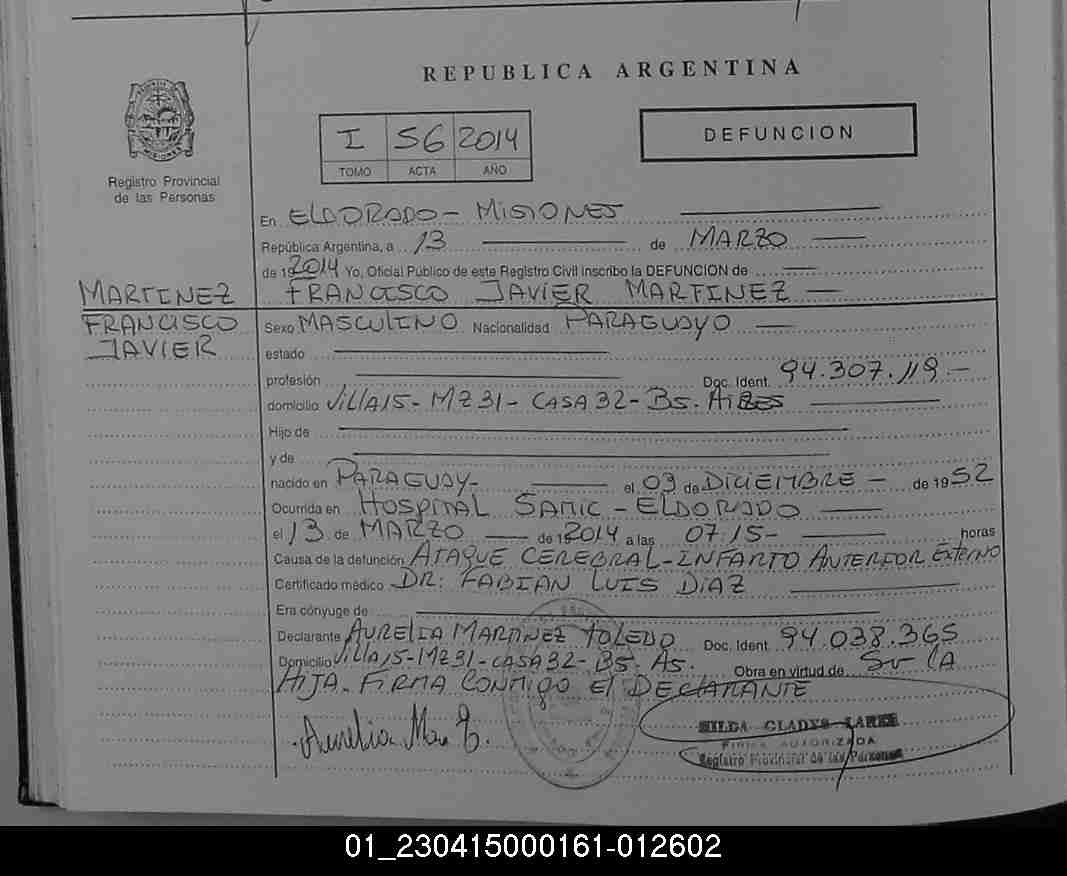 REPUBLICA ARGENTINA
MISIONES
Registro Provincial
de las Personas
I 56 2014
TOMO ACTA AÑO
DEFUNCION
En ELDORADO - MISIONES
República Argentina, a 13 de MARZO
de 19 2014 Yo, Oficial Público de este Registro Civil inscribo la DEFUNCION de
MARTINEZ
FRANCISCO
JAVIER
FRANCISCO JAVIER MARTINEZ
Sexo MASCULINO Nacionalidad PARAGUAYO
estado
profesión Doc. Ident. 94.307.119
domicilio VILLA 15 - MZ 31 - CASA 32 - BS. AIRES
Hijo de
y de
nacido en PARAGUAY- el 03 de DICIEMBRE - de 1952
Ocurrida en HOSPITAL SAMIC - ELDORADO
el 13 de MARZO de 2014 a las 07 15 - horas
Causa de la defunción ATAQUE CEREBRAL - INFARTO ANTERIOR EXTERNO
Certificado médico DR: FABIAN LUIS DIAZ
Era cónyuge de
Declarante AURELIA MARTINEZ TOLEDO Doc. Ident. 94.038.365
Domicilio VILLA 15 - MZ 31 - CASA 32 - BS. AS. Obra en virtud de SU LA
HIJA. FIRMA CONMIGO El DECLARANTE
Aurelia Mar T.
HILDA GLADYS
FIRMA AUTORIZADA
Registro Provincial de las Personas
01_230415000161-012602